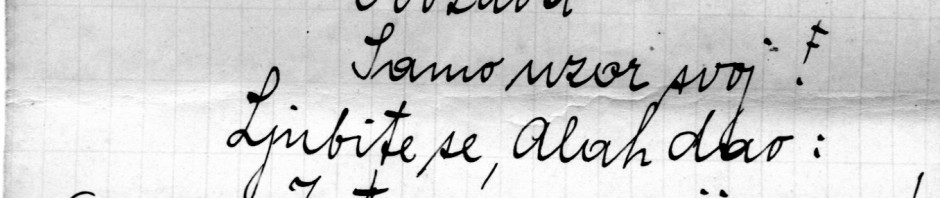 Samo uzor svoj!
Ljubite se, Alah dao: